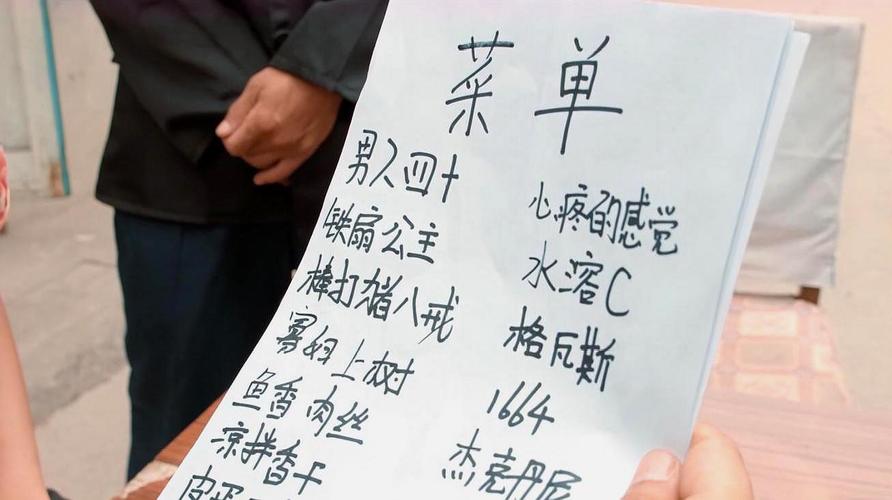 菜单
男人四十
铁扇公主
棒打猪八戒
寡妇上树
鱼香肉丝
凉拌香干
心疼的感觉
水溶C
格瓦斯
1664
杰克丹尼